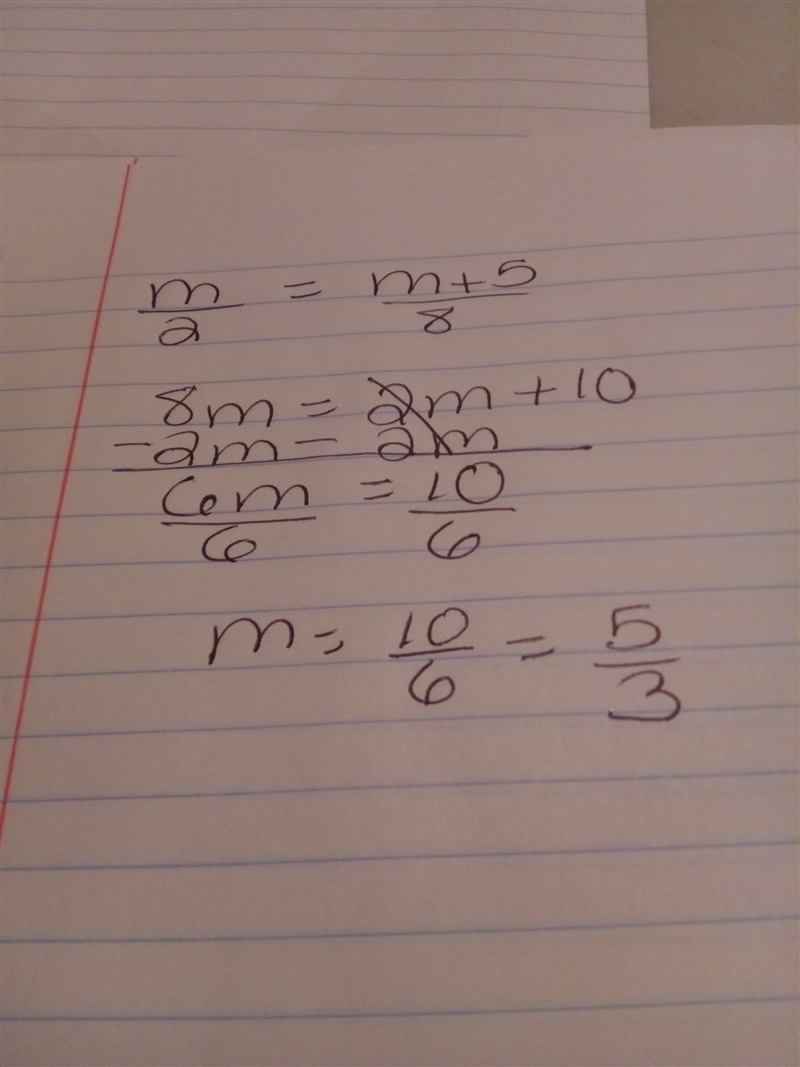 m/2 = m+5/8
8m = 2m + 10
-2m - 2m
6m/6 = 10/6
m = 10/6 = 5/3